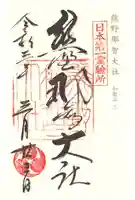 熊野那智大社
日本第一霊験所
熊野那智大社
令和 年 月 日